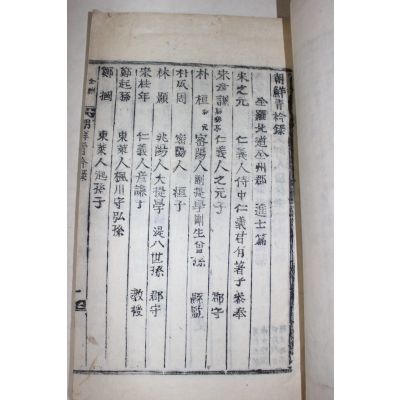 朝鮮青衿錄
全羅北道全州郡 進士篇
宋之元 仁義人侍中仁義君有著子 參奉
宋彥謙 仁義人之元子 郡守
朴桓 密陽人副提學剛生曾孫 縣監
朴成周 密陽人桓子
林顥 兆陽人大提學湜八世孫 郡守
宋桂年 仁義人彥謙子 教授
鄭起孫 東萊人楓川守弘孫
東萊人起孫子
全州 朝鮮青衿錄